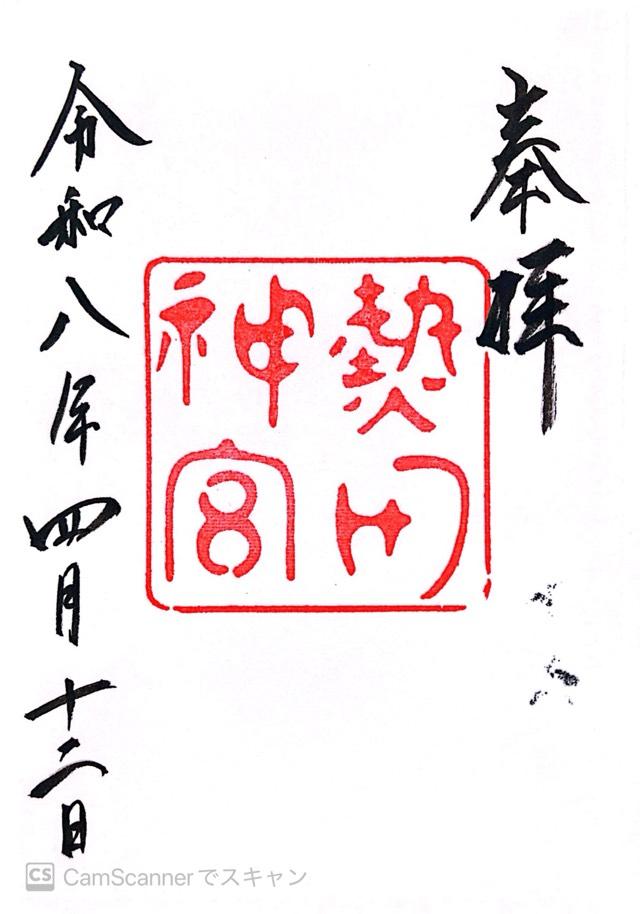 奉拝
熱田
神宮
令和八年四月十二日
CS CamScannerでスキャン